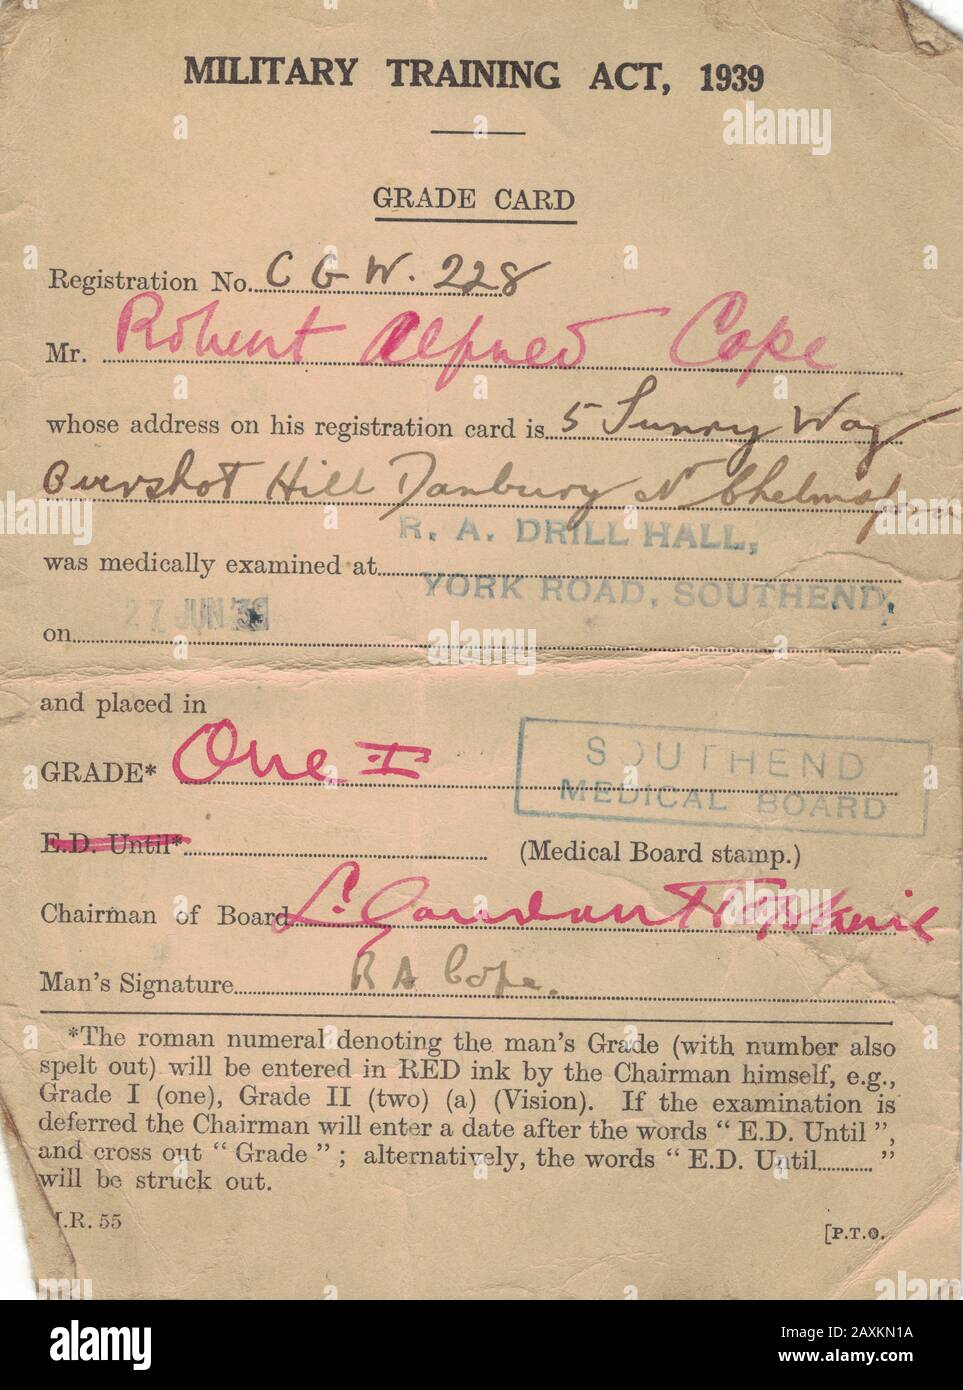 MILITARY TRAINING ACT, 1939
GRADE CARD
Registration No. C G W. 228
Mr. Robert Alfred Cope
whose address on his registration card is 5 Sunny Way
Overshot Hill Danbury Nr Chelmsford
R. A. DRILL HALL,
was medically examined at
YORK ROAD, SOUTHEND,
27 JUN 39
on
and placed in
GRADE* One I
SOUTHEND
MEDICAL BOARD
E.D. Until*
(Medical Board stamp.)
Chairman of Board
Man's Signature R A Cope.
*The roman numeral denoting the man's Grade (with number also
spelt out) will be entered in RED ink by the Chairman himself, e.g.,
Grade I (one), Grade II (two) (a) (Vision). If the examination is
deferred the Chairman will enter a date after the words " E.D. Until ",
and cross out " Grade " ; alternatively, the words " E.D. Until............ "
will be struck out.
.R. 55
[P.T.O.
alamy
alamy
Image ID: 2AXKN1A
www.alamy.com